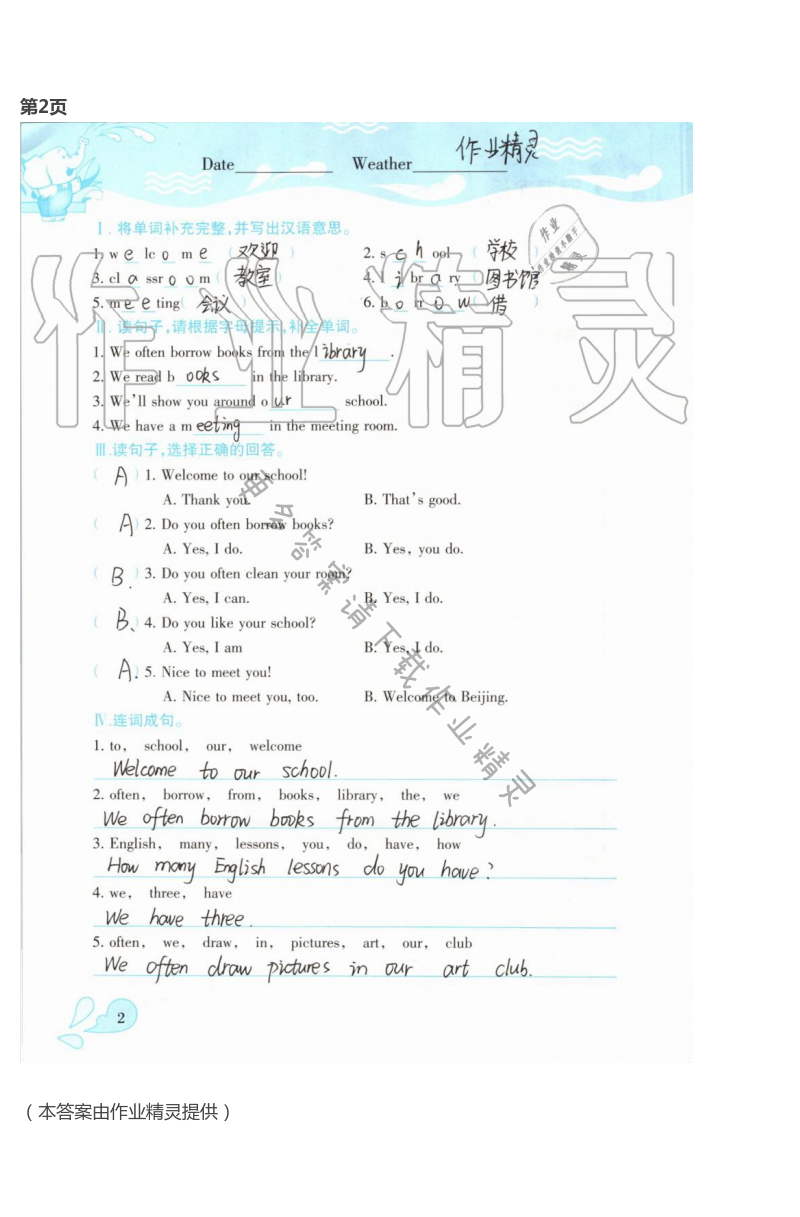 第2页
Date__________ Weather__________ 作业精灵
Ⅰ. 将单词补充完整,并写出汉语意思。
1. w e lc o m e ( 欢迎 ) 2. s c h ool ( 学校 )
3. cl a ssr o o m ( 教室 ) 4. l i br a ry ( 图书馆 )
5. m e e ting( 会议 ) 6. b o rr o w ( 借 )
Ⅱ. 读句子,请根据字母提示,补全单词。
1. We often borrow books from the library .
2. We read b ooks in the library.
3. We'll show you around our school.
4. We have a meeting in the meeting room.
Ⅲ.读句子,选择正确的回答。
( A ) 1. Welcome to our school!
A. Thank you. B. That's good.
( A ) 2. Do you often borrow books?
A. Yes, I do. B. Yes, you do.
( B. ) 3. Do you often clean your room?
A. Yes, I can. B. Yes, I do.
( B、 ) 4. Do you like your school?
A. Yes, I am B. Yes, I do.
( A. ) 5. Nice to meet you!
A. Nice to meet you, too. B. Welcome to Beijing.
Ⅳ.连词成句。
1. to, school, our, welcome
Welcome to our school.
2. often, borrow, from, books, library, the, we
We often borrow books from the library.
3. English, many, lessons, you, do, have, how
How many English lessons do you have?
4. we, three, have
We have three.
5. often, we, draw, in, pictures, art, our, club
We often draw pictures in our art club.
2
作业精灵
更多答案请下载作业精灵
(本答案由作业精灵提供)